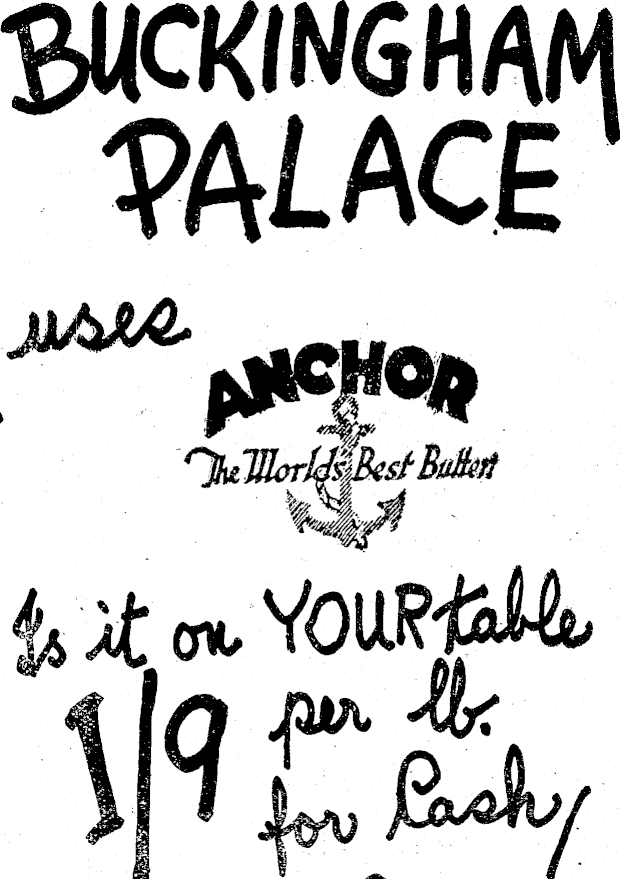 BUCKINGHAM
PALACE
uses
ANCHOR
The World's Best Butter
Is it on YOUR table
1/9 per lb.
for Cash